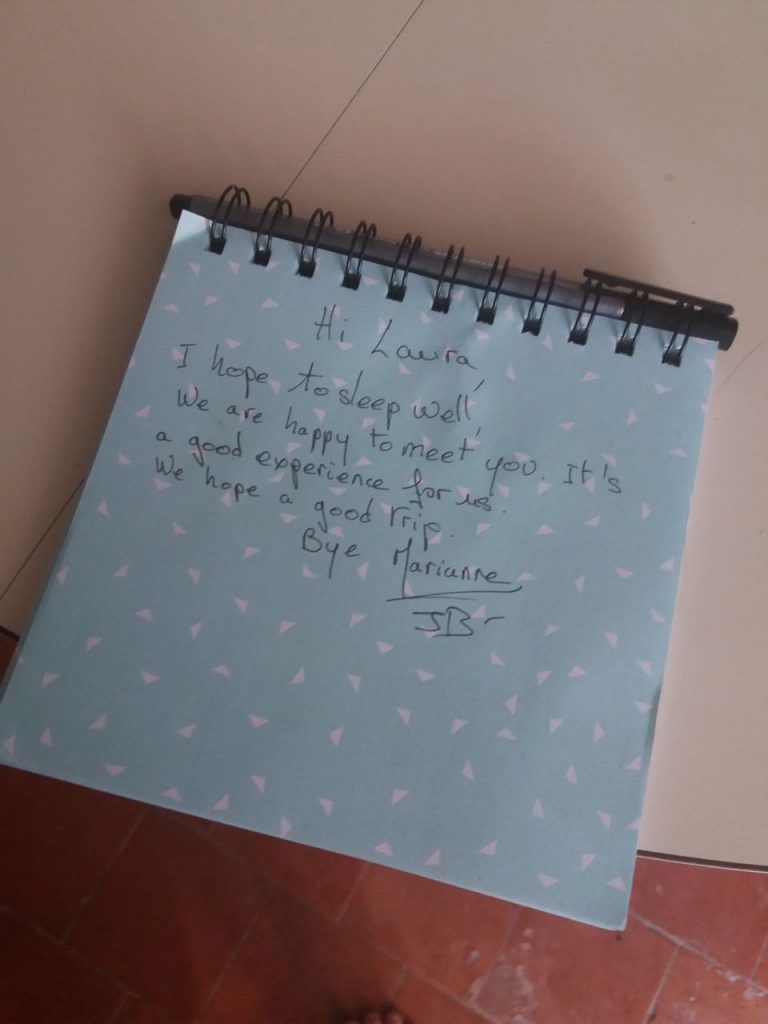 Hi Laura,
I hope to sleep well,
We are happy to meet you. It's
a good experience for us.
We hope a good trip.
Bye Marianne
JB